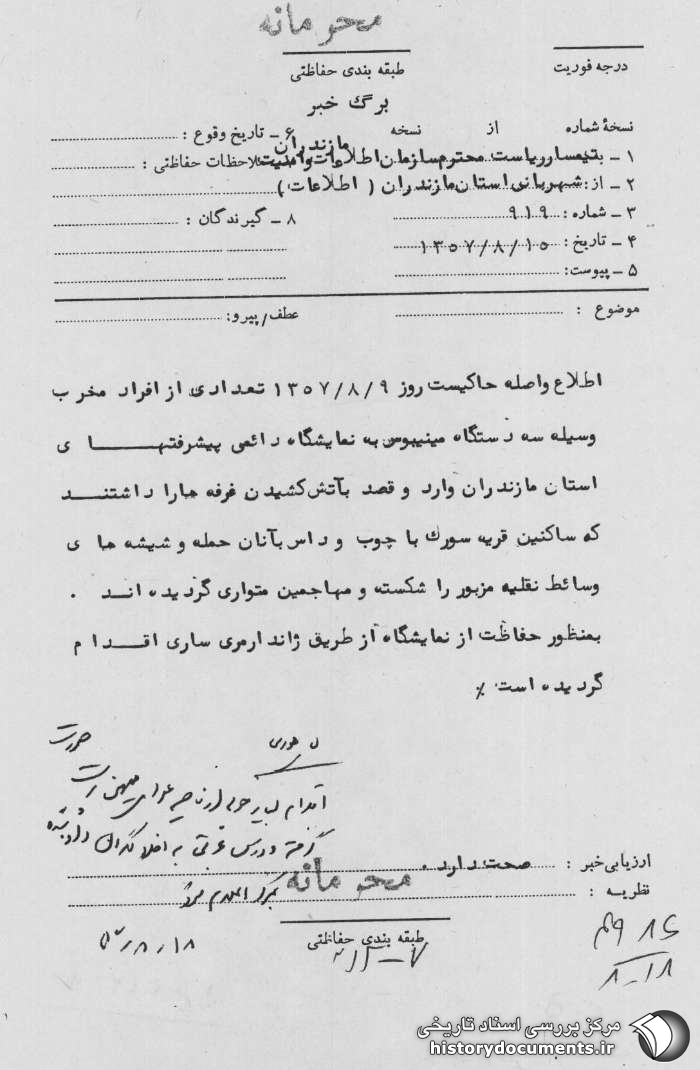 محرمانه
درجه فوریت
طبقه بندی حفاظتی
برگ خبر
نسخهٔ شماره از نسخه
۶ ـ تاریخ وقوع :
مازندران
۱ ـ بتیمسار ریاست محترم سازمان اطلاعات و امنیت
ملاحظات حفاظتی :
۲ ـ از: شهربانی استان مازندران ( اطلاعات )
۳ ـ شماره : ۹۱۹
۸ ـ گیرندگان :
۴ ـ تاریخ : ۱۳۵۷/۸/۱۰
۵ ـ پیوست:
موضوع :
عطف/پیرو:
اطلاع واصله حاکیست روز ۱۳۵۷/۸/۹ تعدادی از افراد مخرب
وسیله سه دستگاه مینیبوس به نمایشگاه دائمی پیشرفتهای
استان مازندران وارد و قصد بآتش کشیدن غرفه هارا داشتند
که ساکنین قریه سورك با چوب و داس بآنان حمله و شیشه های
وسائط نقلیه مزبور را شکسته و مهاجمین متواری گردیده اند .
بمنظور حفاظت از نمایشگاه از طریق ژاندارمری ساری اقدام
گردیده است ٪
اقدام
ارزیابی خبر : صحت دارد .
محرمانه
نظریه :
طبقه بندی حفاظتی
مرکز بررسی اسناد تاریخی
historydocuments.ir